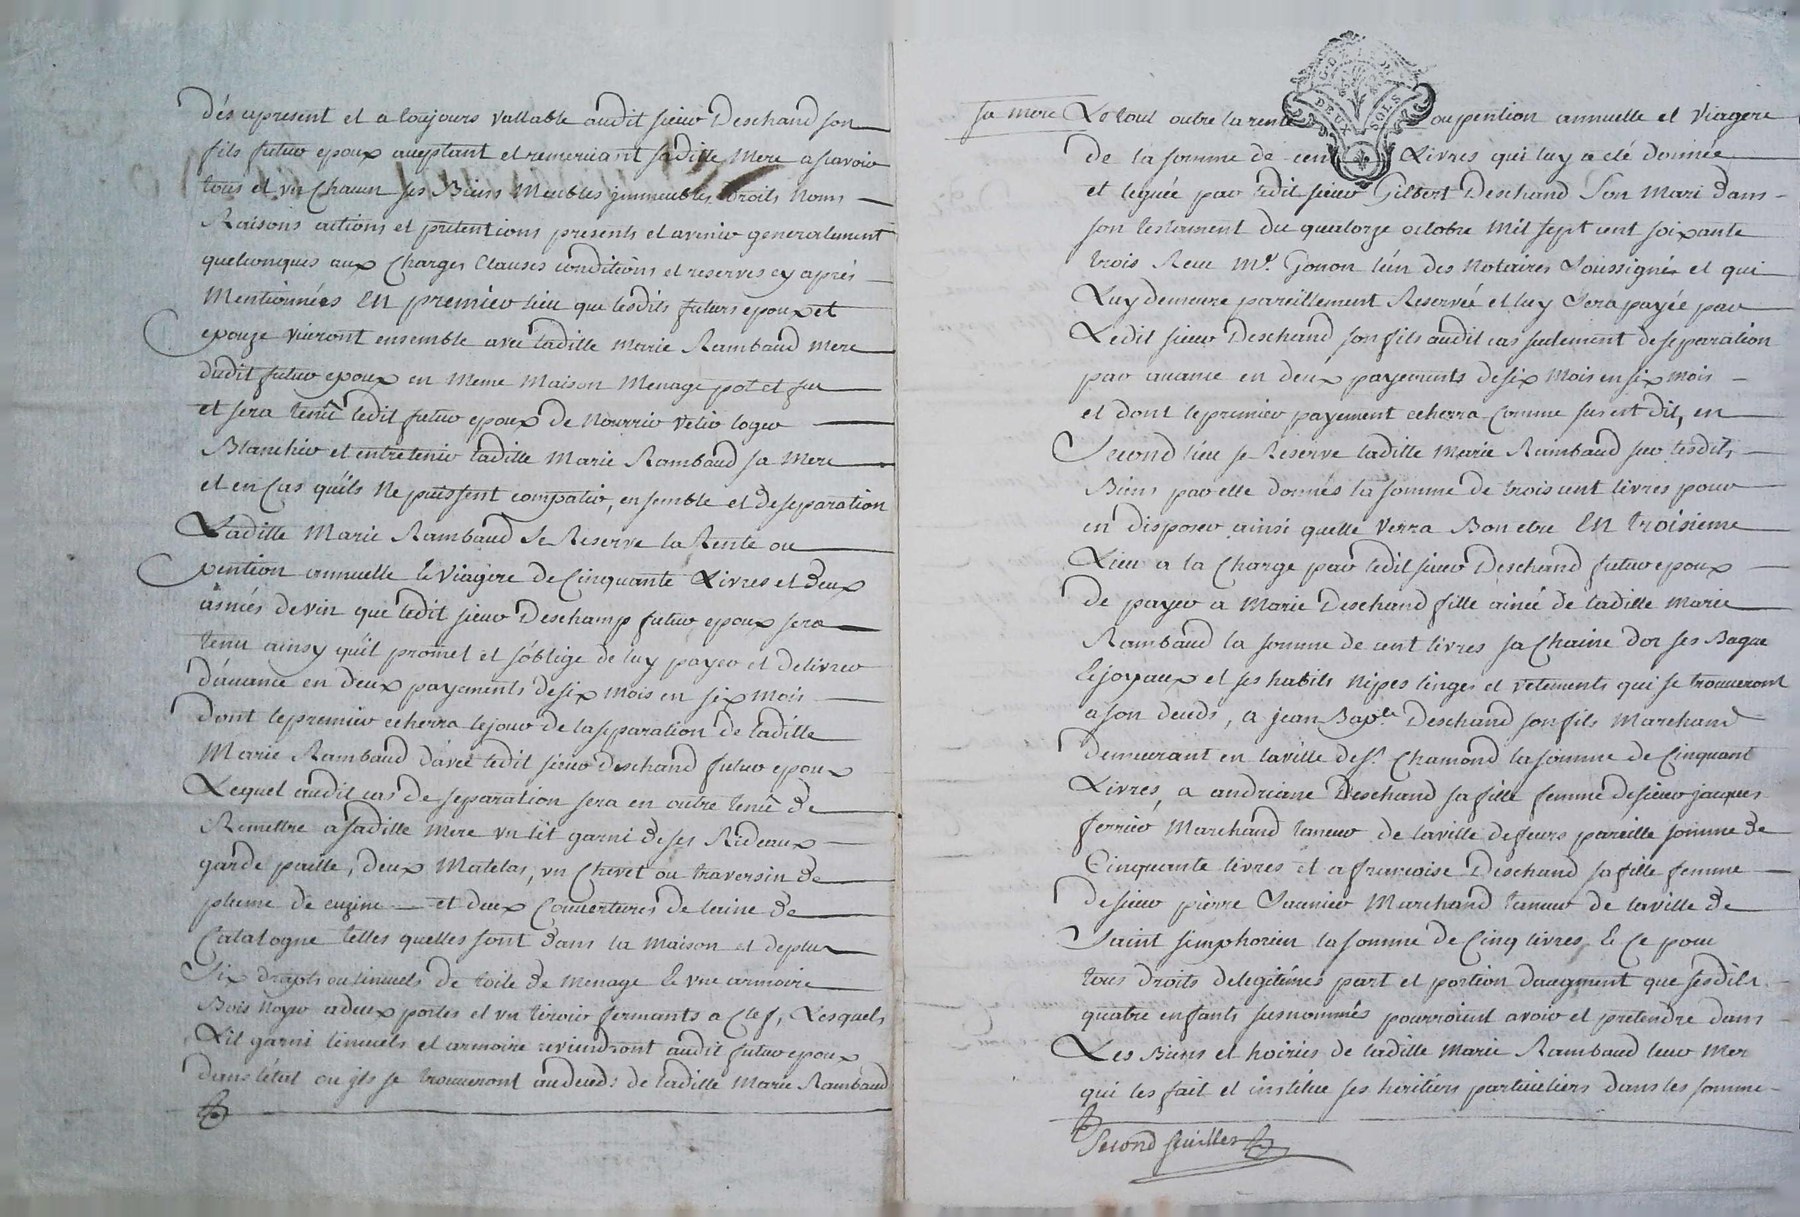 dés apresent et a toujours vallable audit sieur Deschand son
fils futur epoux aceptant et remerciant sadille Mere a scavoir
tous et vn Chacun ses Biens Meubles jmmeubles Droits Noms
Raisons actions et pretentions presents et avenir generalement
quelconques aux Charges Clauses conditions et reserves cy aprés
Mentionnées EN premier lieu que lesdits futurs epoux et
epouze vivront ensemble avec ladille Marie Rambaud mere
dudit futur epoux en Meme Maison Menage pot et feu
et sera tenû ledit futur epoux de Nourrir vetir loger
Blanchir et entretenir ladille Marie Rambaud sa Mere
et en Cas quils Ne puissent compatir, ensemble et deseparation
Ladille Marie Rambaud Se Reserve la Rente ou
pention annuelle & Viagere de Cinquante Livres et deux
asnées de vin que ledit sieur Deschamp futur epoux sera
tenu ainsy qu'il promet et s'oblige de luy payer et delivrer
d'avance en deux payements de six Mois en six Mois
dont lepremier echerra lejour de la separation de ladille
Marie Rambaud d'avec ledit sieur deschand futur epoux
Lequel audit cas de separation sera en outre tenû de
Remettre a sadille Mere vn lit garni de ses Rideaux
garde paille, deux Matelas, vn Chevet ou traversin de
plume de cuzine et deux Couvertures de laine de
Catalogne telles quelles sont dans la Maison et deplus
Six draps ou linceuls de toile de Menage & vne armoire
Bois Noyer a deux portes et vn tiroir fermants a Clef, Lesquels
Lit garni linceuls et armoire reviendront audit futur epoux
dans létat ou jls se trouveront audeceds de ladille Marie Rambaud
sa mere Le tout outre la rente ou pention annuelle et Viagere
DEUX SOLS
de la somme de cent Livres qui luy a eté donnée
et leguée par ledit sieur Gilbert Deschand Son Mari dans
son testament du quatorze octobre Mil sept cent soixante
trois Receu Me. Gonon lún des Notaires Soussignés et qui
Luy demeure pareillement Reservée et luy Sera payée par
Ledit sieur Deschand son fils audit cas seulement de separation
par avance en deux payements de six Mois en six Mois
et dont le premier payement echerra Comme sus est dit, en
Second lieu se Reserve ladille Marie Rambaud sur lesdits
Biens par elle donnés la somme de trois cent livres pour
en disposer ainsi quelle Verra Bon etre EN troisieme
Lieu a la Charge par ledit sieur Deschand futur epoux
de payer a Marie Deschand fille ainée de ladille Marie
Rambaud la somme de cent livres sa Chaine dor ses Bague
& joyaux et ses habits Nippes linges et vetements qui se trouveront
a son deceds, a jean Bapte. Deschand son fils Marchand
demeurant en laville de St. Chamond la somme de Cinquant
Livres, a andriane Deschand sa fille femme de sieur jacques
ferrier Marchand taneur de laville de feurs pareille somme de
Cinquante livres et a francoise Deschand sa fille femme
de sieur pierre Saunier Marchand taneur de laville de
Saint simphorien la somme de Cinq livres, & Ce pour
tous droits de legitimes part et portion daugment que sesdits
quatre enfants susnommés pourroient avoir et pretendre dans
Les Biens et hoiries de ladille Marie Rambaud leur Mer
qui les fait et institue ses heritiers particuliers dans les somme
Second feuillet